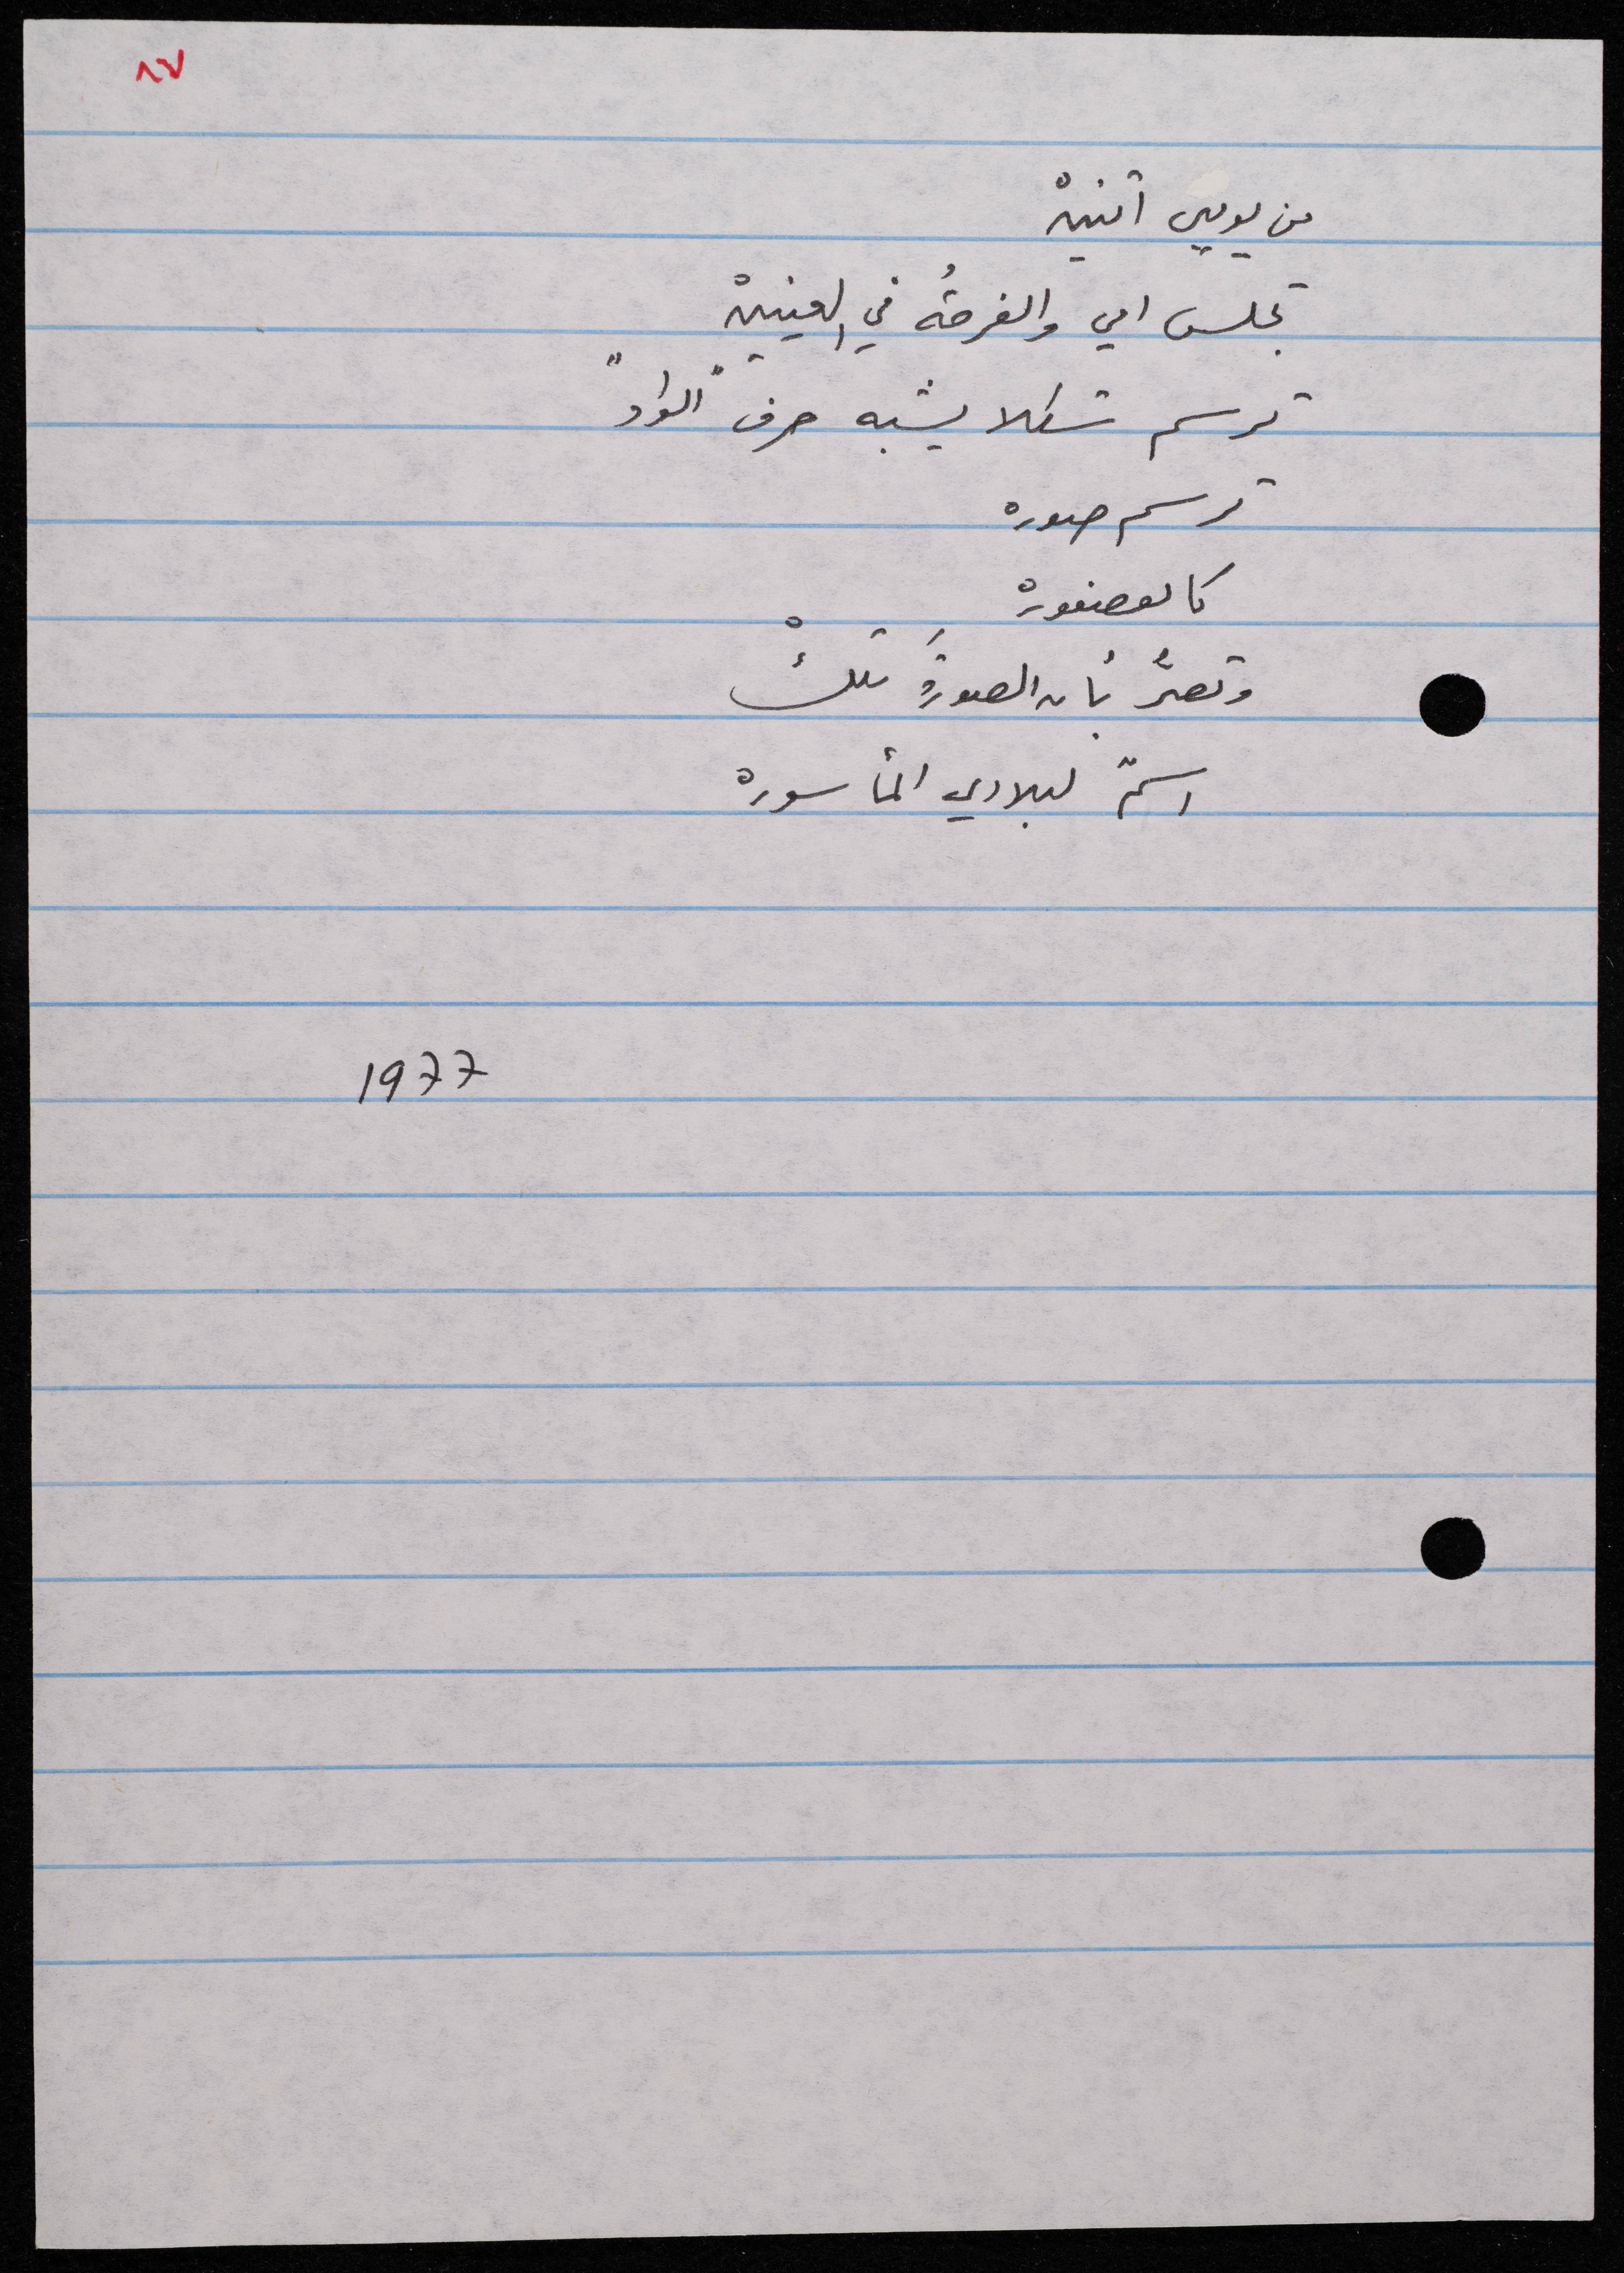 ٨٧
من يومين اثنينْ
تجلس امي والفرحةُ في العينينْ
ترسم شكلا يشبه حرف "الواو"
ترسم صوره
كالعصفورة
وتصرُّ بأن الصورةَ تلكْ
اسمٌ لبلادي المأسورة
1977